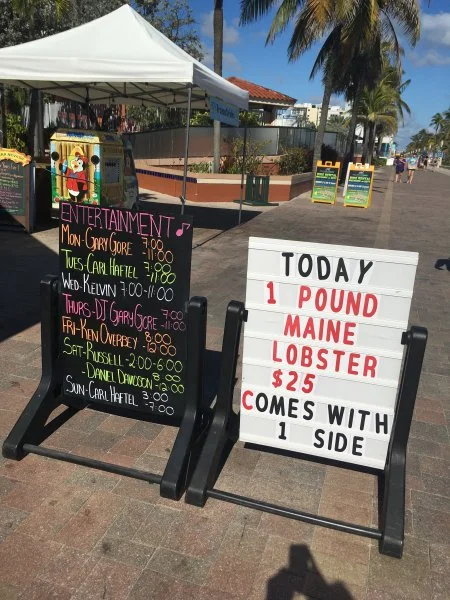 ENTERTAINMENT
MON-GARY GORE 7:00-11:00
TUES-CARL HAFTEL 7:00-11:00
WED-KELVIN 7:00-11:00
THURS-DJ GARY GORE 7:00-11:00
FRI-KEN OVERBEY 8:00-12:00
SAT-RUSSELL-2:00-6:00
-DANIEL DAVIDSON 8:00-12:00
SUN-CARL HAFTEL 3:00-7:00
TODAY
1 POUND
MAINE
LOBSTER
$25
COMES WITH
1 SIDE